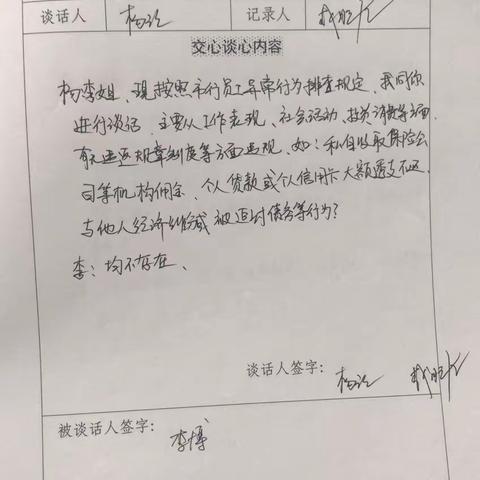 谈话人 杨 记录人
交心谈心内容
杨:李姐,现按照市行员工异常行为排查规定,我同你
进行谈话,主要从工作表现、社会活动、投资消费等方面
有无违反规章制度等方面违规,如:私自收取保险公
司等机构佣金、个人贷款或个人信用卡大额透支不还、
与他人经济纠纷或被追讨债务等行为?
李:均不存在、
谈话人签字: 杨
被谈话人签字: 李博